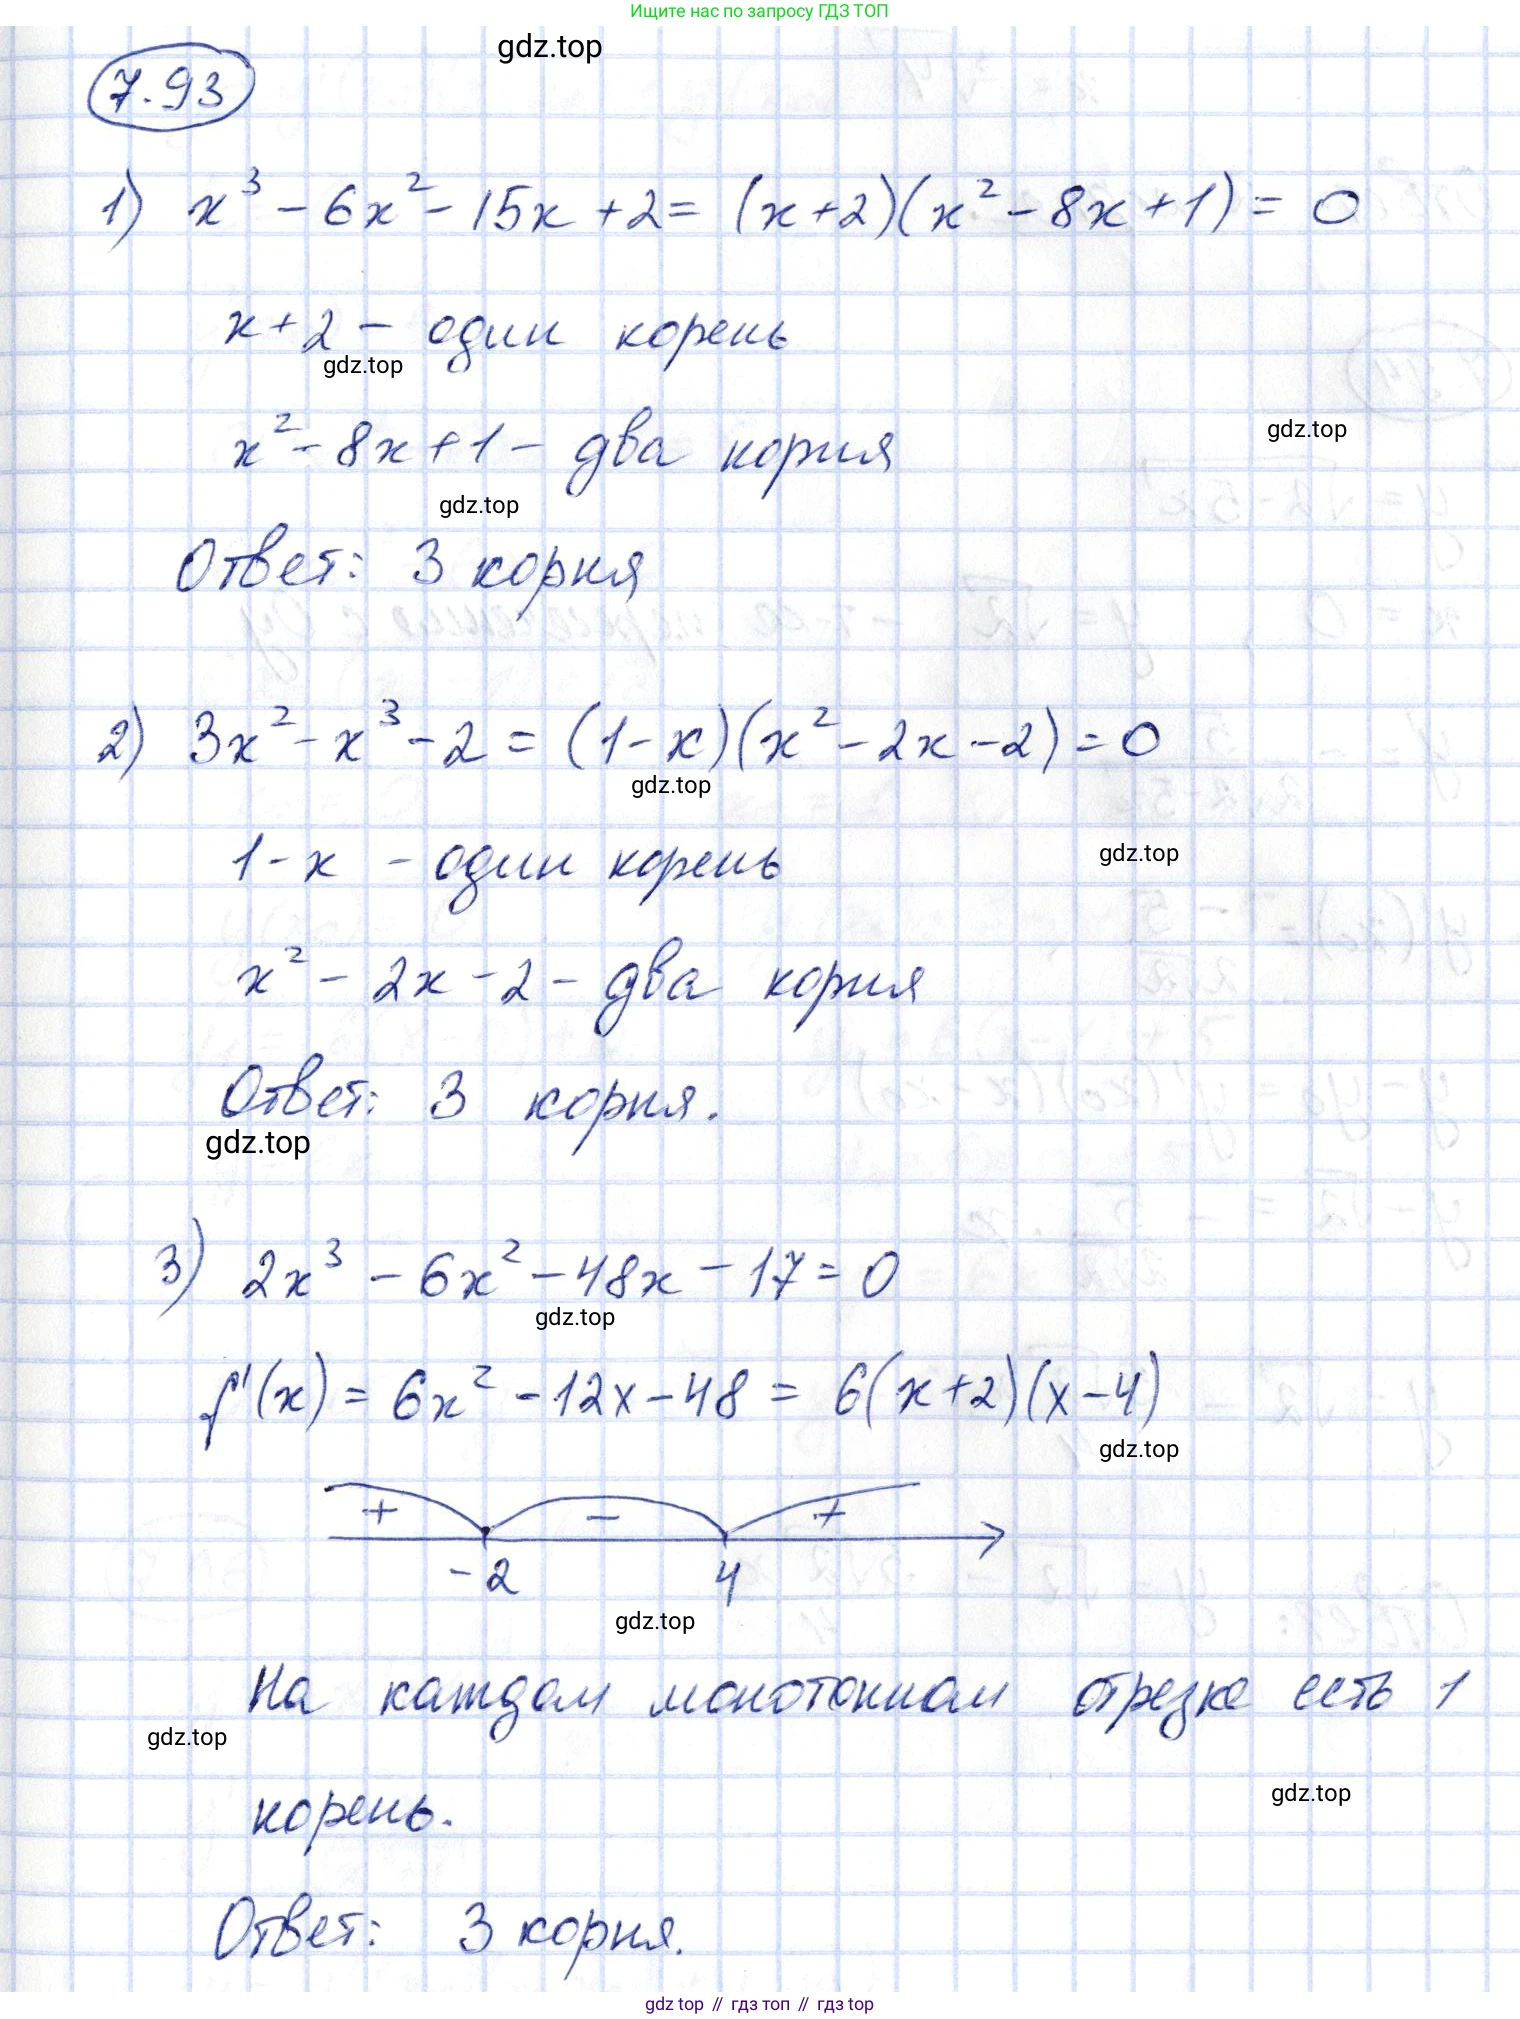 Ищите нас по запросу ГДЗ ТОП
gdz.top
7.93
1) x³ - 6x² - 15x + 2 = (x+2)(x² - 8x + 1) = 0
x+2 - один корень
gdz.top
x² - 8x + 1 - два корня
gdz.top
gdz.top
Ответ: 3 корня
2) 3x² - x³ - 2 = (1-x)(x² - 2x - 2) = 0
gdz.top
1-x - один корень
gdz.top
x² - 2x - 2 - два корня
Ответ: 3 корня.
gdz.top
3) 2x³ - 6x² - 48x - 17 = 0
gdz.top
f'(x) = 6x² - 12x - 48 = 6(x+2)(x-4)
gdz.top
+ - +
-2 4
gdz.top
На каждом монотонном отрезке есть 1
gdz.top
gdz.top
корень.
Ответ: 3 корня.
gdz top // гдз топ // гдз top